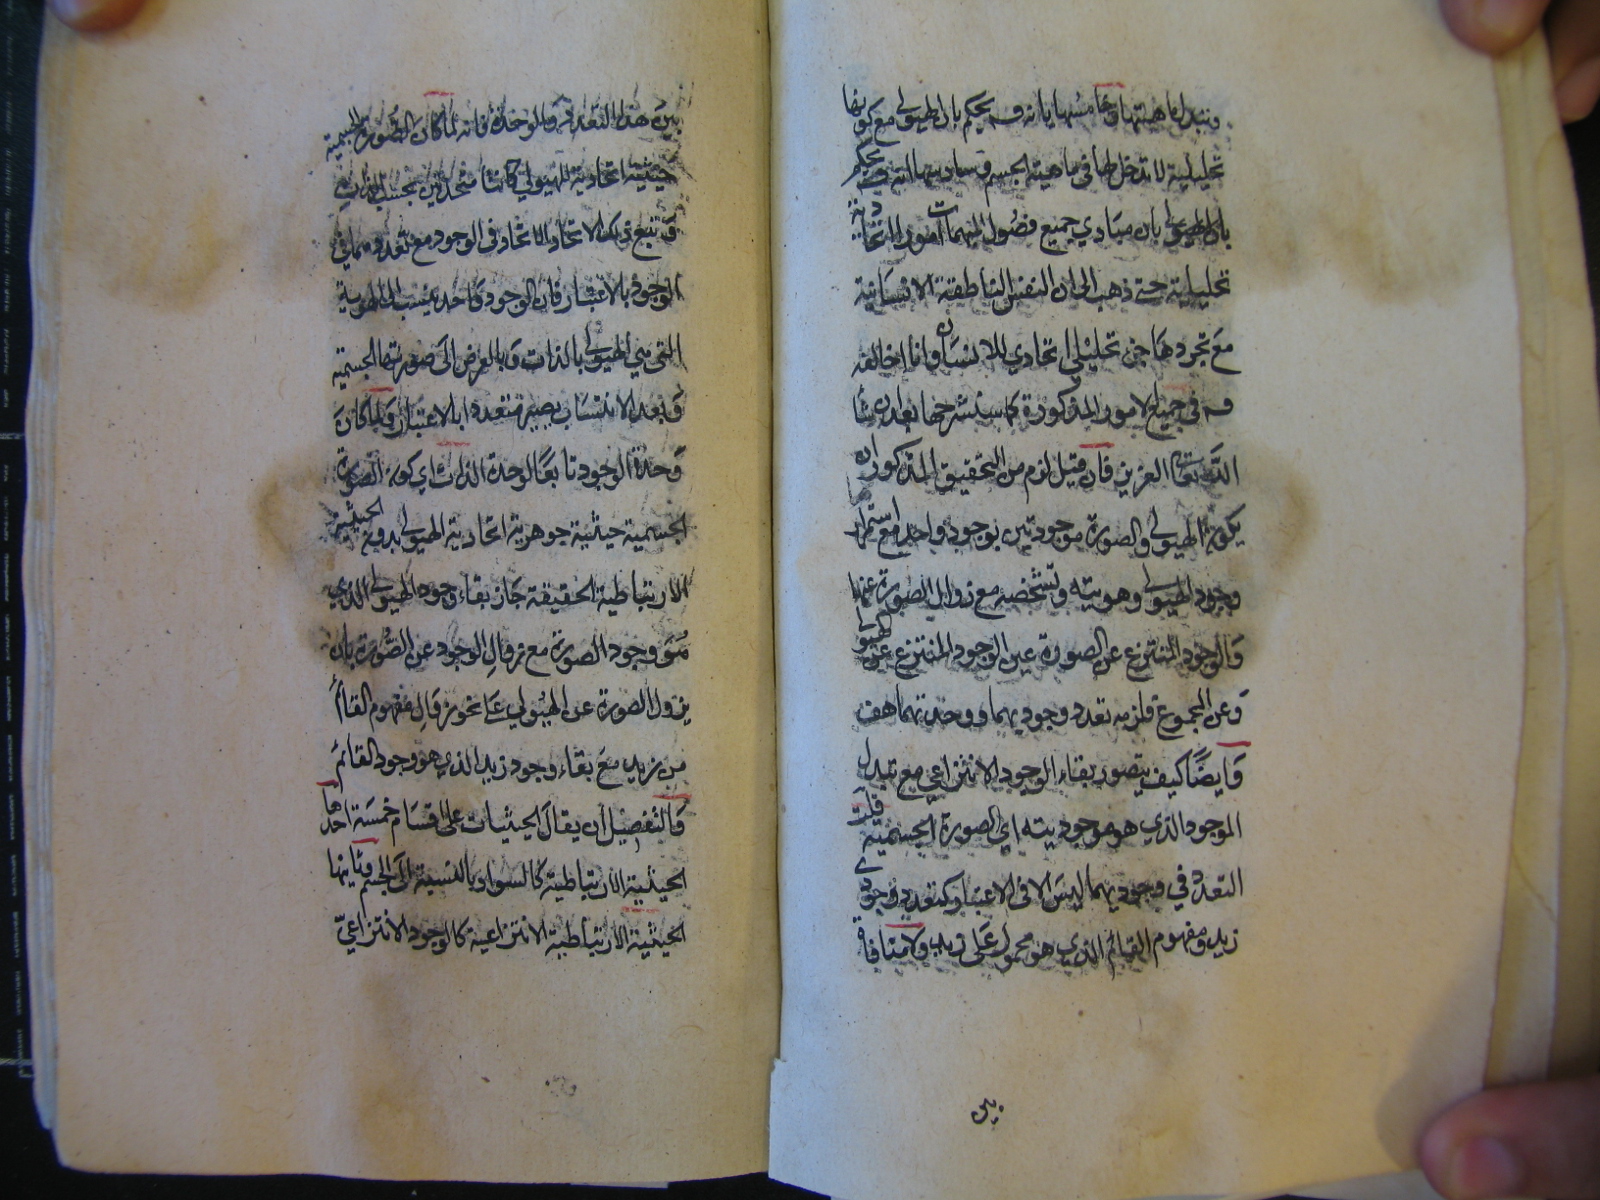 وتبدل ماهيتها وخامسها بانه قد يحكم بان الهيولى مع كونها
تحليلية لا تدخل لها في ماهية الجسم وسادسها انه يحكم
بان مبادي جميع فصول المهيات امور اتحادية
تحليلية حتى ذهب الى ان النفس الناطقة الانسانية
مع تجردها جزء تحليلي اتحادي للانسان وانا اخالفه
في جميع الامور المذكورة كما سنشرحها بعد ان شا
الله تعالى العزيز فان قيل لزم من التحقيق المذكور ان
يكون الهيولى والصورة موجودتين بوجود واحد مع استمرار
وجود الهيولى وهويته وتشخصه مع زوال الصورة عنها
والوجود المنتزع عن الصورة عين الوجود المنتزع عن الهيولى
وعن المجموع فلزمه تعدد وجوديهما ووحدتهما هف
وايضا كيف يتصور بقاء الوجود الانتزاعي مع تبدل
الموجود الذي هو موجود بيته اي الصورة الجسمية قلت
التعدد في وجوديهما ليس الا في الاعتبار كتعدد وجودي
زيد ومفهوم القائم الذي هو محمول على زيد ولا منافاة
بين
بين هذا التعدد والوحدة فانه لما كان الصورة الجسمية
حيثية اتحادية للهيولى كانتا متحدتين بحسب الذات
ويتبع ذلك الاتحاد الاتحاد في الوجود مع تعددهما في
الوجود بالاعتبار فان الوجود واحد ينسب الى الهوية
التي هي الهيولى بالذات وبالعرض الى صورتها الجسمية
وبعد الانتساب يصير متعددا بالاعتبار ولما كان
وحدة الوجود تابعا لوحدة الذات اي كون الصورة
الجسمية حيثية جوهرية اتحادية الهيولى بدون الحيثية
الارتباطية الحقيقة جاز بقاء وجود الهيولى الذي
هو وجود الصورة مع زوال الوجود عن الصورة بان
يزول الصورة عن الهيولى على نحو زوال مفهوم القائم
من زيد مع بقاء وجود زيد الذي هو وجود القائم
والتفصيل ان يقال الحيثيات على اقسام خمسة احدها
الحيثية الارتباطية كالسواد بالنسبة الى الجسم وثانيها
الحيثية الارتباطية الانتزاعية كالوجود الانتزاعي